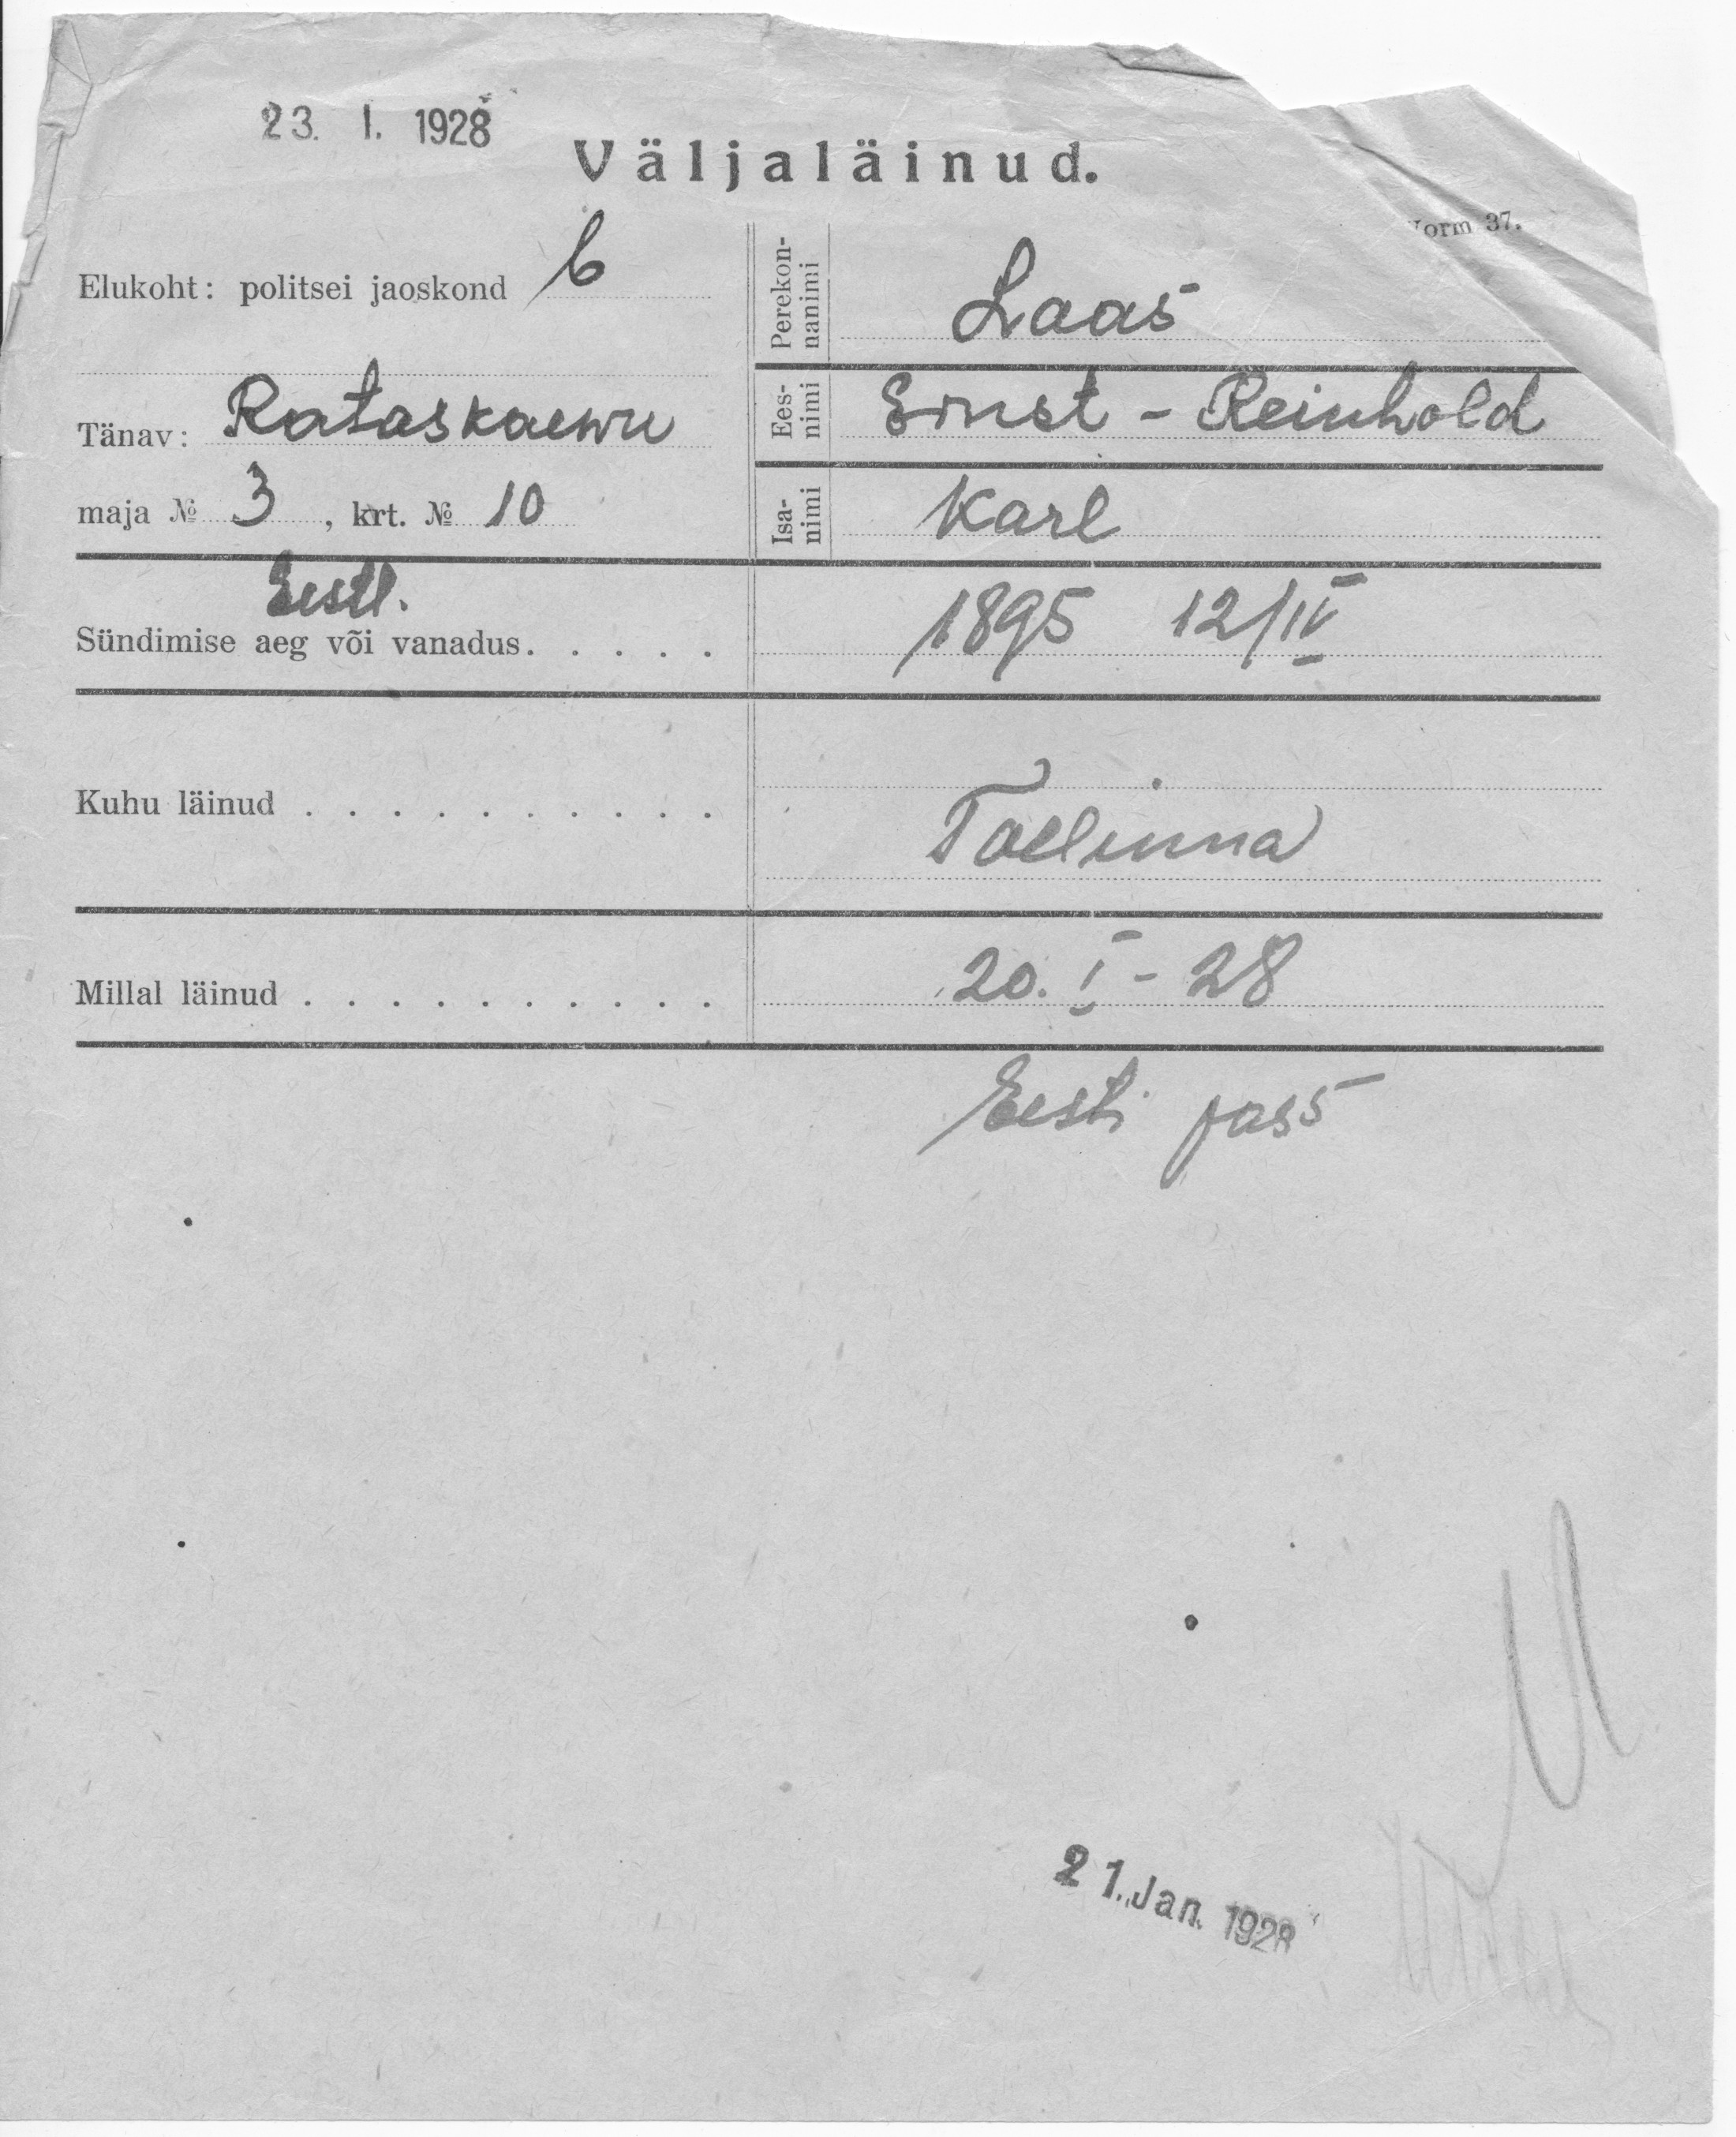 23. I. 1928
Väljaläinud.
orm 37.
Elukoht: politsei jaoskond 6
Tänav: Rataskaewu
maja № 3, krt. № 10
Perekon-
nanimi Laas
Ees-
nimi Ernst - Reinhold
Isa-
nimi Karl
Eestl.
Sündimise aeg või vanadus. . . . . 1895 12/IV
Kuhu läinud . . . . . . . . . . Tallinna
Millal läinud . . . . . . . . . . 20. I - 28
Eesti pass
21. Jan. 1928